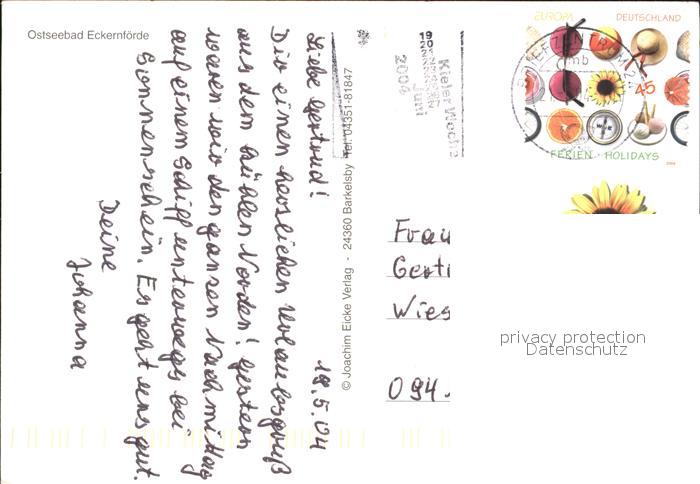 Ostseebad Eckernförde
18.5.04
Liebe Gertrud!
Dir einen herzlichen Urlaubsgruß
aus dem kühlen Norden! Gestern
waren wir den ganzen Nachmittag
auf einem Schiff unterwegs bei
Sonnenschein. Es geht uns gut.
Deine
Johanna
© Joachim Eicke Verlag - 24360 Barkelsby Tel. 04351-81847
Kieler Woche
Juni
2004
EUROPA
DEUTSCHLAND
45
FERIEN HOLIDAYS
Frau
Gertr
Wies
094
privacy protection
Datenschutz